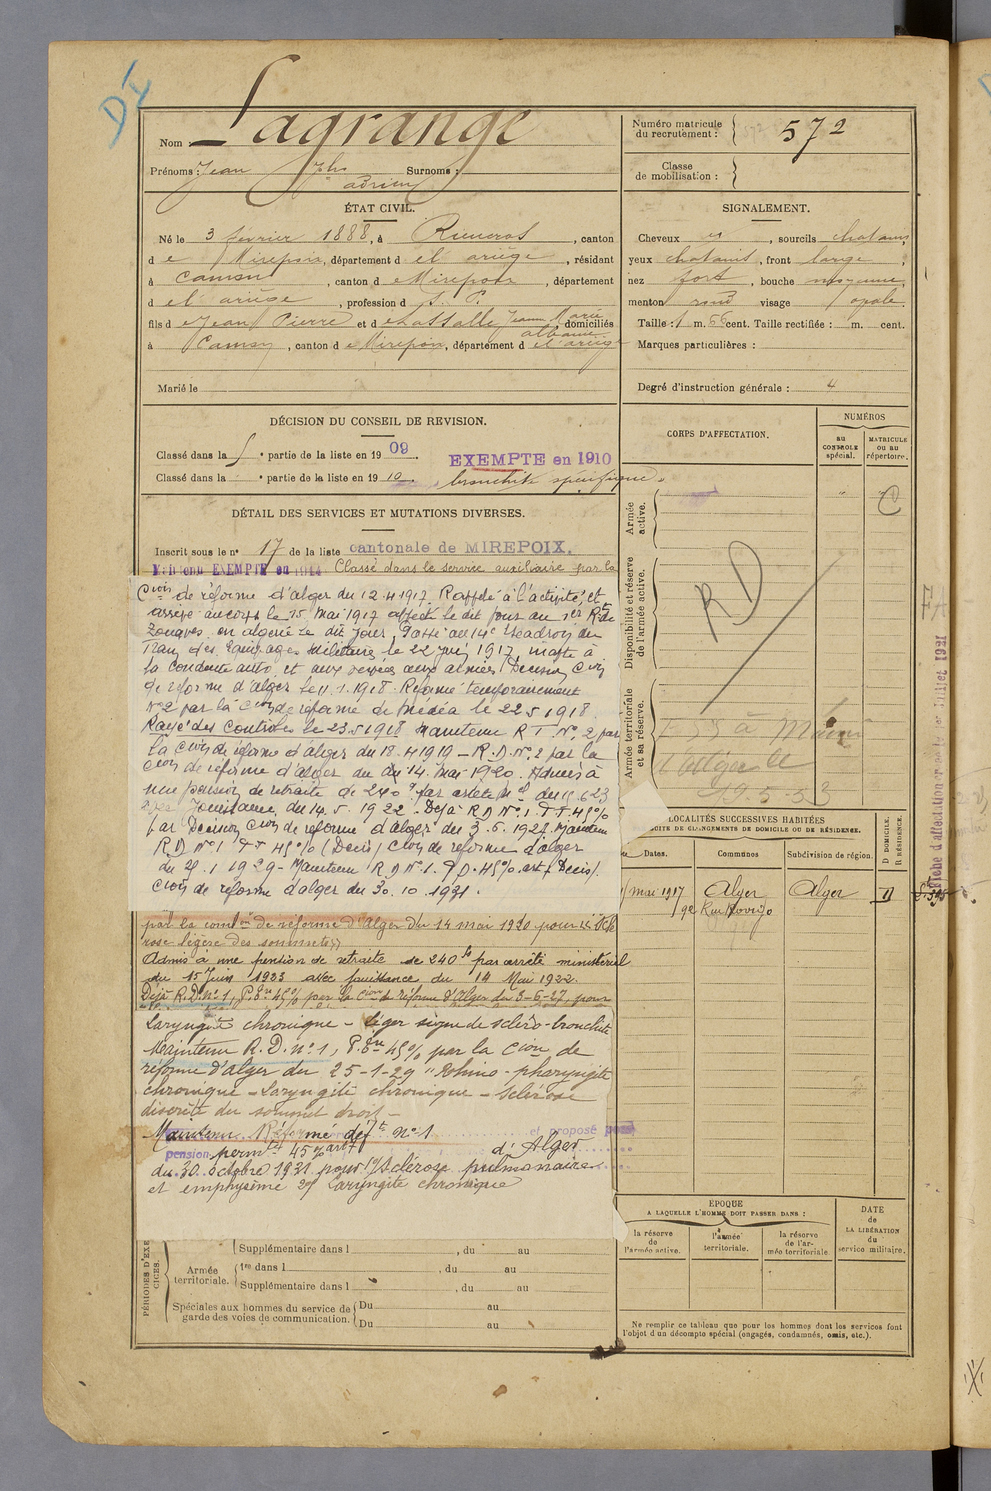 DI
Nom Lagrange
Prénoms : Jean Jph Surnoms :
adrien
Numéro matricule du recrutement : 572
Classe de mobilisation :
ÉTAT CIVIL.
Né le 3 février 1888, à Rieucros, canton
d e Mirepoix, département d el ariège, résidant
à Camon, canton d e Mirepoix, département
d el ariège, profession d S. P.
fils d e Jean Pierre et d e Lassalle Jeanne Marie, domiciliés
à Camon, canton d e Mirepoix, département d el ariège
Marié le
SIGNALEMENT.
Cheveux , sourcils chatains
yeux chatains, front large,
nez fort, bouche moyenne,
menton rond visage ovale.
Taille : 1 m. 66 cent. Taille rectifiée : m. cent.
Marques particulières :
Degré d'instruction générale : 4
DÉCISION DU CONSEIL DE REVISION.
Classé dans la 5e partie de la liste en 1909
EXEMPTE en 1910
Classé dans la e partie de la liste en 1910. bronchite spécifique.
DÉTAIL DES SERVICES ET MUTATIONS DIVERSES.
Inscrit sous le no 17 de la liste cantonale de MIREPOIX.
Maintenu EXEMPTE en 1914 Classé dans le service auxiliaire par la
Cion de réforme d'alger du 12.4.1917. Rappelé à l'activité, et
arrivé au corps le 15 Mai 1917 affecté le dit jour au 1er Rt de
Zouaves. en algérie le dit jour. Passé au 14e Escadron du
Train des Equipages Militaires le 22 juin 1917, inapte à
la conduite auto et aux armées Décision Cion
de réforme d'alger le 11.1.1918. Réformé temporairement
No 2 par la Cion de réforme de Médéa le 22.5.1918.
Rayé des Controles le 23.5.1918 Maintenu R T No 2 par
la Cion de réforme d'alger du 18.4.1919 – R.D. No 2 par la
Cion de réforme d'alger du 14. mai 1920. Admis à
une pension de retraite de 240 f par arrêté du 15.6.23
avec Jouissance du 14.5.1922. Déjà R D No 1. P.T. 45%
par Décision Cion de réforme d'alger du 3.6.1927. Maintenu
R D No 1 P T 45% (Decis) Cion de réforme d'alger
du 25.1.1929 – Maintenu R D No 1. P D. 45% art 7 Decis).
Cion de réforme d'alger du 30.10.1931.
par la comon de réforme d'Alger du 14 mai 1920 pour sclé
rose légère des sommets
Admis à une pension de retraite de 240 fs par arrêté ministériel
du 15 Juin 1923 avec jouissance du 14 Mai 1922.
Déjà R.D. no 1, P. 45% par la Cion de réforme d'Alger du 3-6-27, pour
Laryngite chronique – léger signe de scléro-bronchite
Maintenu R.D. no 1, P. 45% par la Cion de
réforme d'alger du 25-1-29 "Rhino-pharyngite
chronique – Laryngite chronique – Sclérose
discrète du sommet droit –
Maintenu Réformé déf no 1 et proposé pour
pension permte 45% art 7 d'Alger
du 30 Octobre 1931 pour 1o/ Sclérose pulmonaire
et emphysème 2o/ Laryngite chronique
PÉRIODES D'EXERCICES.
Supplémentaire dans l , du au
Armée territoriale.
1re dans l , du au
Supplémentaire dans l , du au
Spéciales aux hommes du service de garde des voies de communication.
Du au
Du au
CORPS D'AFFECTATION.
NUMÉROS
au CONTRÔLE spécial.
MATRICULE ou au répertoire.
Armée active.
Disponibilité et réserve de l'armée active.
Armée territoriale et sa réserve.
RD
C
19-5-53
LOCALITÉS SUCCESSIVES HABITÉES
SUITE DE CHANGEMENTS DE DOMICILE OU DE RÉSIDENCE.
Dates. Communes Subdivision de région. D DOMICILE. R RÉSIDENCE.
mai 1917 Alger Alger D
9e Rue Rovigo
ÉPOQUE
A LAQUELLE L'HOMME DOIT PASSER DANS :
la réserve de l'armée active.
l'armée territoriale.
la réserve de l'armée territoriale
DATE de LA LIBÉRATION du service militaire.
Ne remplir ce tableau que pour les hommes dont les services font
l'objet d'un décompte spécial (engagés, condamnés, omis, etc.).